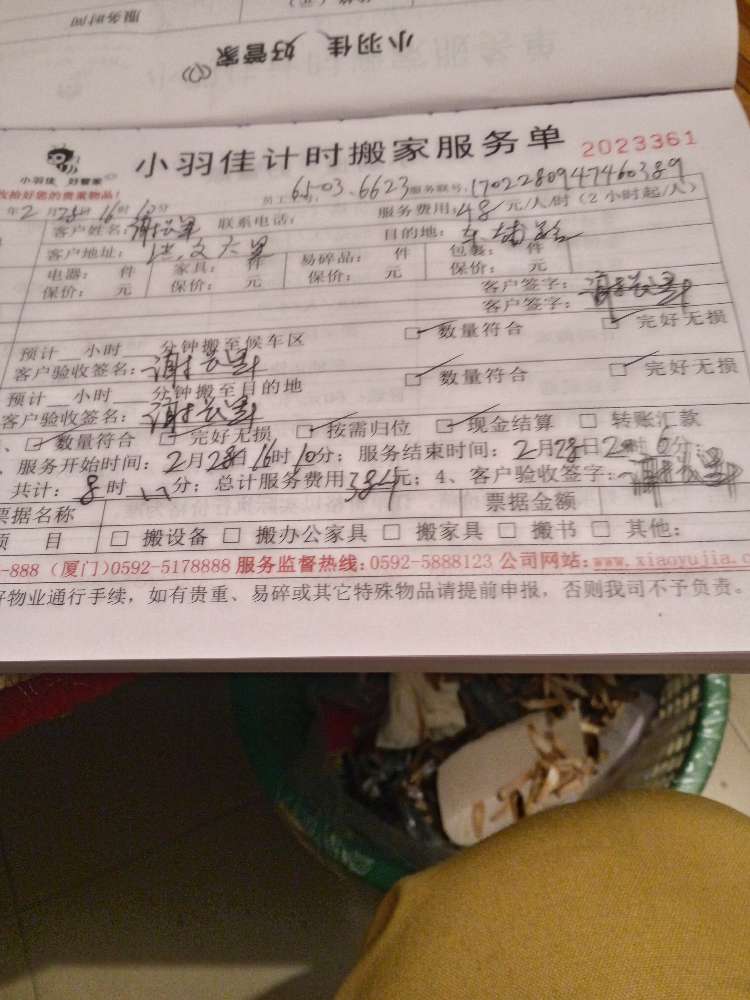 服务时间
小羽佳 好管家
小羽佳 好管家
小羽佳计时搬家服务单 2023361
收拾好您的贵重物品!
6503.6623 服务联号:1702280947460389
年2月28日16时10分 服务费用:48元/人/时(2小时起/人)
客户姓名: 联系电话: 目的地:
客户地址:
电器: 件 家具: 件 易碎品: 件 包装: 件
保价: 元 保价: 元 保价: 元 保价: 元
客户签字:
客户签字:
预计 小时 分钟搬至候车区 □数量符合 □完好无损
客户验收签名:
预计 小时 分钟搬至目的地 □数量符合 □完好无损
客户验收签名:
□数量符合 □完好无损 □按需归位 □现金结算 □转账汇款
服务开始时间:2月28日16时10分;服务结束时间:2月28日2 时6分;
共计:8时 分;总计服务费用384元;4、客户验收签字:
票据名称 票据金额
项 目 □搬设备 □搬办公家具 □搬家具 □搬书 □其他:
-888(厦门)0592-5178888 服务监督热线:0592-5888123 公司网站:www.xiaoyujia.c
好物业通行手续,如有贵重、易碎或其它特殊物品请提前申报,否则我司不予负责。